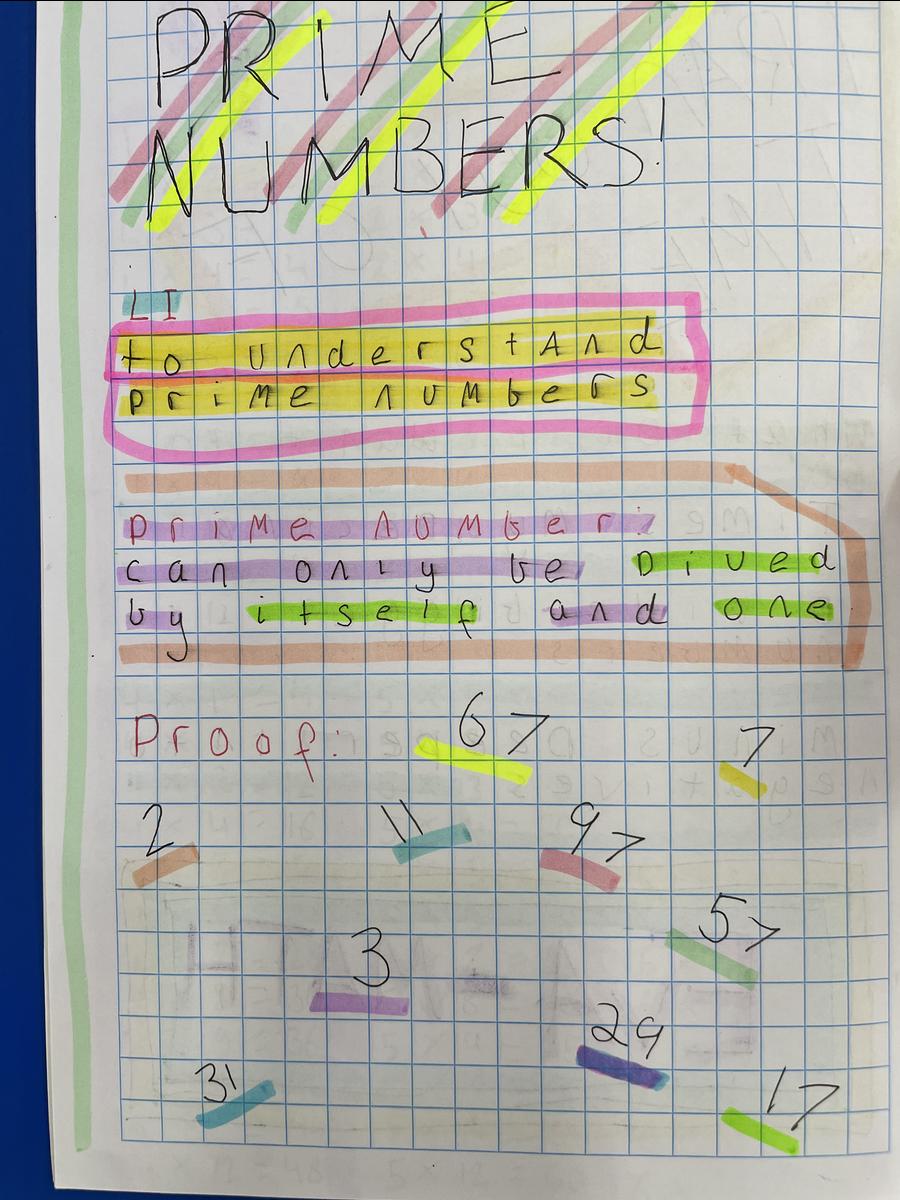 PRIME
NUMBERS!
LI
to understAnd
priMe nuMbers
priMe nuMber:
can only be Dived
by itself and one
Proof: 67 7
2 11 97
57
3
29
31 17